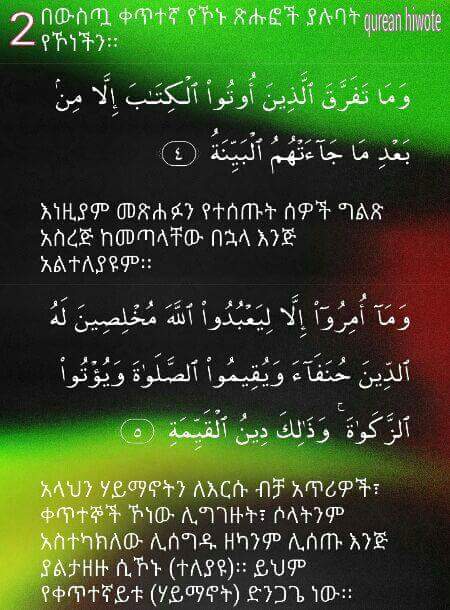 2
በውስጧ ቀጥተኛ የኾኑ ጽሑፎች ያሉባት
qurean hiwote
የኾነችን፡፡
وَمَا تَفَرَّقَ ٱلَّذِينَ أُوتُوا۟ ٱلْكِتَـٰبَ إِلَّا مِنۢ
بَعْدِ مَا جَآءَتْهُمُ ٱلْبَيِّنَةُ ٤
እነዚያም መጽሐፉን የተሰጡት ሰዎች ግልጽ
አስረጅ ከመጣላቸው በኋላ እንጅ
አልተለያዩም፡፡
وَمَآ أُمِرُوٓا۟ إِلَّا لِيَعْبُدُوا۟ ٱللَّهَ مُخْلِصِينَ لَهُ
ٱلدِّينَ حُنَفَآءَ وَيُقِيمُوا۟ ٱلصَّلَوٰةَ وَيُؤْتُوا۟
ٱلزَّكَوٰةَ ۚ وَذَٰلِكَ دِينُ ٱلْقَيِّمَةِ ٥
አላህን ሃይማኖትን ለእርሱ ብቻ አጥሪዎች፣
ቀጥተኞች ኾነው ሊግገዙት፣ ሶላትንም
አስተካክለው ሊሰግዱ ዘካንም ሊሰጡ እንጅ
ያልታዘዙ ሲኾኑ (ተለያዩ)፡፡ ይህም
የቀጥተኛይቱ (ሃይማኖት) ድንጋጌ ነው፡፡